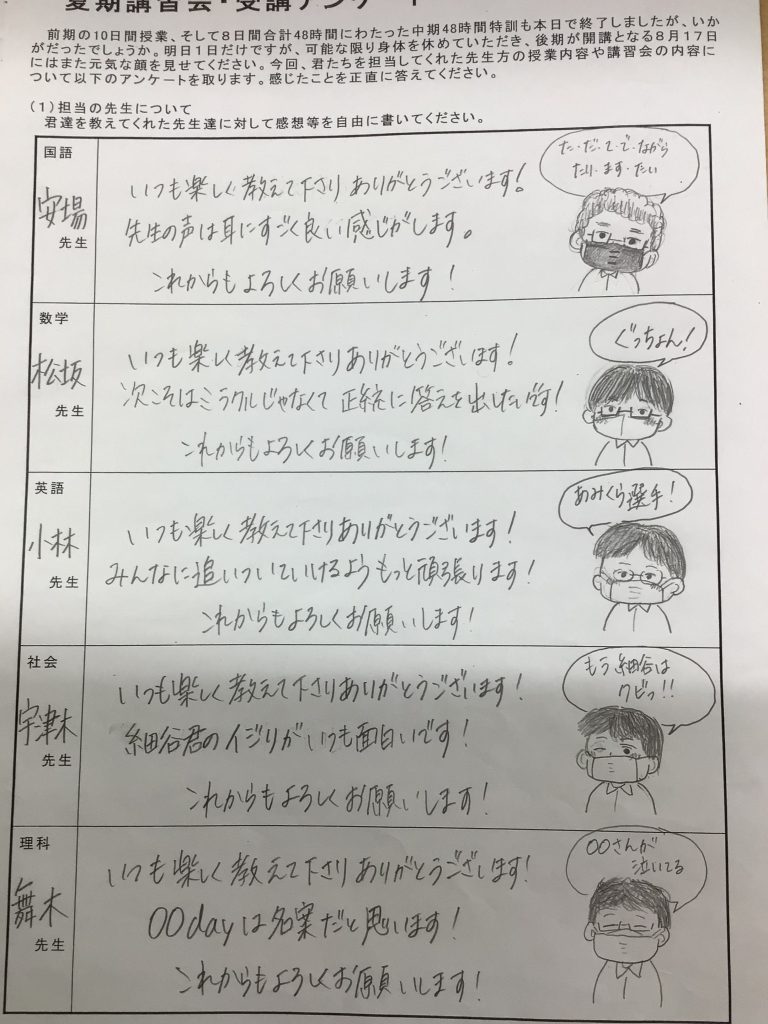 夏期講習会・受講アンケート
前期の10日間授業、そして８日間合計48時間にわたった中期48時間特訓も本日で終了しましたが、いか
がだったでしょうか。明日１日だけですが、可能な限り身体を休めていただき、後期が開講となる８月１７日
にはまた元気な顔を見せてください。今回、君たちを担当してくれた先生方の授業内容や講習会の内容に
ついて以下のアンケートを取ります。感じたことを正直に答えてください。
（１）担当の先生について
君達を教えてくれた先生達に対して感想等を自由に書いてください。
国語
安場
先生
いつも楽しく教えて下さりありがとうございます！
先生の声は耳にすごく良い感じがします。
これからもよろしくお願いします！
た・だ・て・で・ながら
たり・ます・たい
数学
松坂
先生
いつも楽しく教えて下さりありがとうございます！
次こそはミラクルじゃなくて正統に答えを出したいです！
これからもよろしくお願いします！
ぐっちょん！
英語
小林
先生
いつも楽しく教えて下さりありがとうございます！
みんなに追いついていけるようもっと頑張ります！
これからもよろしくお願いします！
あみくら選手！
社会
宇津木
先生
いつも楽しく教えて下さりありがとうございます！
細谷君のイジリがいつも面白いです！
これからもよろしくお願いします！
もう細谷は
クビっ！！
理科
舞木
先生
いつも楽しく教えて下さりありがとうございます！
〇〇dayは名案だと思います！
これからもよろしくお願いします！
〇〇さんが
泣いてる